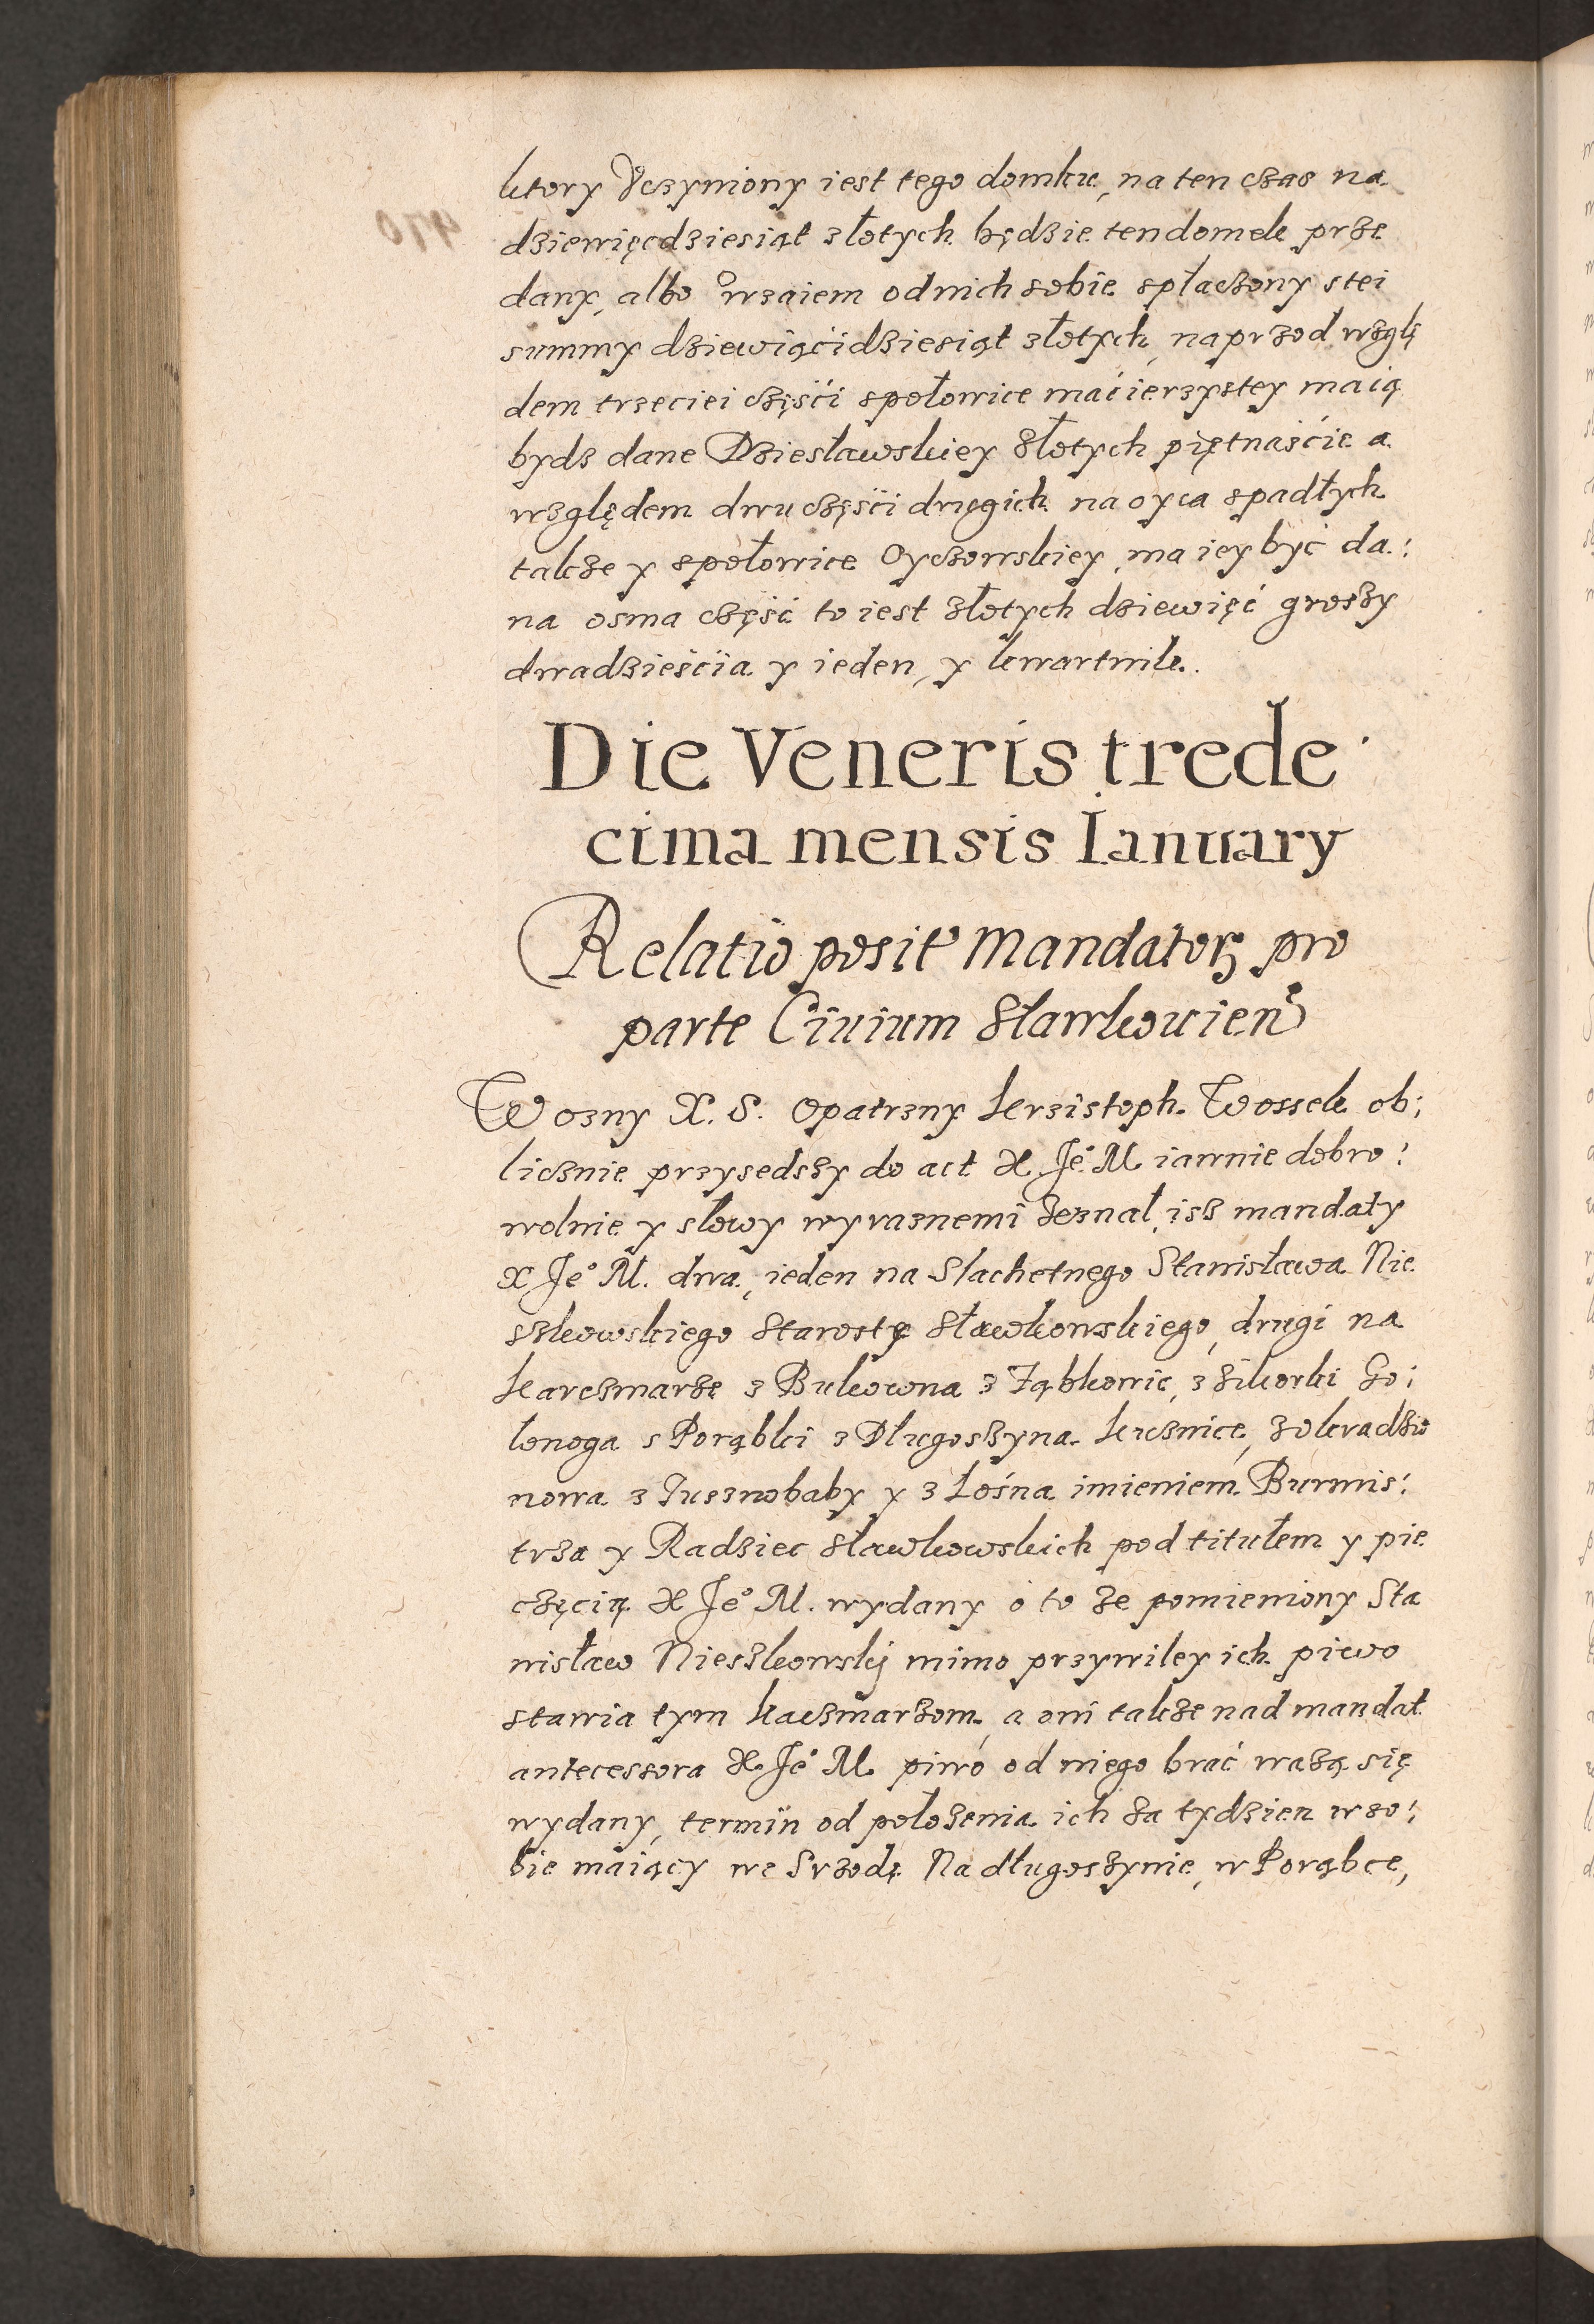 ktory Vczyniony iest tego domku, na ten czas na
dziewięcdziesiąt złotych będzie ten domek prze
dany, albo wzaiem od nich sobie spłaczony s tei
summy dziewiąćidziesiąt złotych, naprzod wzglę
dem trzeciei częśći społowice maćierzystey maią
bydz dane Dziesławskiey złotych piętnaśćie a
względem dwu częśći drugich na oyca spadłych
takze y społowice Oyczowskiey, ma iey być da:
na osma częsć to iest złotych dziewięć groszy
dwadzieśćia y ieden, y kwartnik.
Die Veneris trede
cima mensis Ianuary
Relatio posit mandatorꝝ pro
parte Ciuium Sławkouien
Wozny X. S. Opatrzny Krzistoph Wossek ob:
licznie przysedszy do act X Je° M iawnie dobro:
wolnie y słowy wyraznemi zeznał, isz mandaty
X Je° M. dwa, ieden na Slachetnego Stanisława Nie
szkowskiego Starostę Sławkowskiego, drugi na
Karczmarze z Bukowna z Ząbkowic, z Sikorki Go:
łonoga s Porąbki z Dlugoszyna Kuźnice, z okradzio
nowa z Tucznobaby y z Łośna imieniem Burmis:
trza y Radziec Sławkowskich pod titułem y pie
częcią X Je° M. wydany o to ze pomieniony Sta
nisław Nieszkowskij mimo przywiley ich piwo
stawia tym kaczmarzom, a oni takze nad mandat
antecessora X Je° M piwo od niego brać wazą się
wydany, termin od położenia ich za tydzien w so:
bie maiący we Srzodę Na długoszynie, w Porąbce,